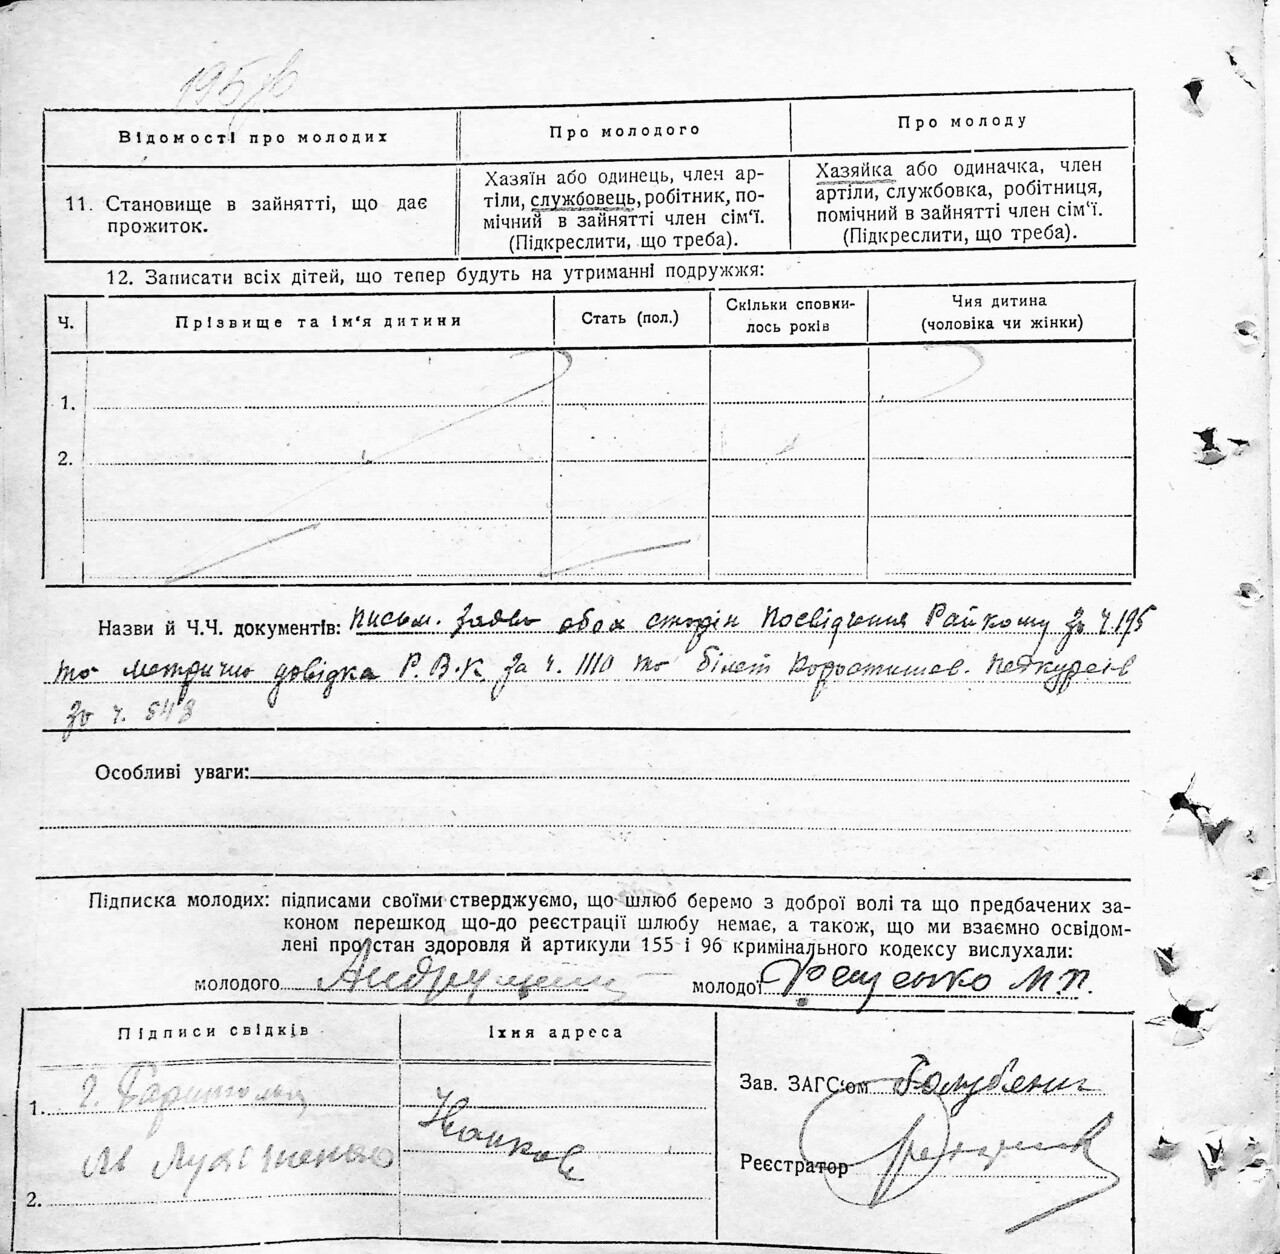 Відомості про молодих
Про молодого
Про молоду
11. Становище в зайнятті, що дає
прожиток.
Хазяїн або одинець, член ар-
тілі, службовець, робітник, по-
мічний в зайнятті член сім'ї.
(Підкреслити, що треба).
Хазяйка або одиначка, член
артілі, службовка, робітниця,
помічний в зайнятті член сім'ї.
(Підкреслити, що треба).
12. Записати всіх дітей, що тепер будуть на утриманні подружжя:
Ч.
Прізвище та ім'я дитини
Стать (пол.)
Скільки сповни-
лось років
Чия дитина
(чоловіка чи жінки)
1.
2.
Назви й Ч.Ч. документів: письм. заява обох сторін посвідчення Райкому за ч. 195
та метрична довідка Р.В.К за ч. 1110 та білет Коростишів.
за ч. 548
Особливі уваги:
Підписка молодих: підписами своїми стверджуємо, що шлюб беремо з доброї волі та що предбачених за-
коном перешкод що-до реєстрації шлюбу немає, а також, що ми взаємно освідом-
лені про стан здоровля й артикули 155 і 96 кримінального кодексу вислухали:
молодого
молодої М.П.
Підписи свідків
Їхня адреса
1.
2.
Зав. ЗАГС'ом
Реєстратор